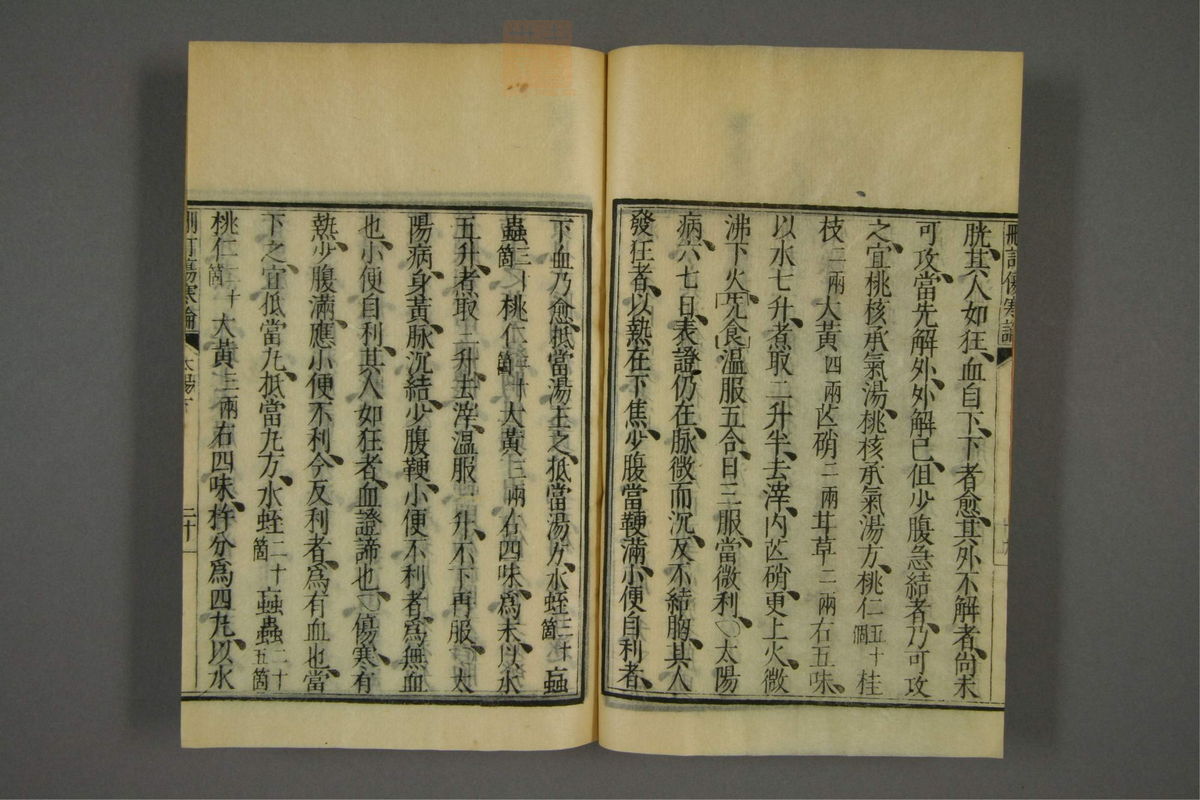 刪訂傷寒論
胱其人如狂血自下下者愈其外不解者尚未
可攻當先解外外解已但少腹急結者乃可攻
之宜桃核承氣湯桃核承氣湯方桃仁五十箇桂
枝二兩大黃四兩芒硝二兩甘草二兩右五味
以水七升煮取二升半去滓內芒硝更上火微
沸下火「先食」溫服五合日三服當微利○太陽
病六七日表證仍在脈微而沉反不結胸其人
發狂者以熱在下焦少腹當鞕滿小便自利者
下血乃愈抵當湯主之抵當湯方水蛭三十箇䖟
蟲三十箇桃仁二十箇大黃三兩右四味為末以水
五升煮取三升去滓溫服一升不下再服○太
陽病身黃脈沉結少腹鞕小便不利者為無血
也小便自利其人如狂者血證諦也○傷寒有
熱少腹滿應小便不利今反利者為有血也當
下之宜抵當丸抵當丸方水蛭二十箇䖟蟲二十五箇
桃仁二十箇大黃三兩右四味杵分為四丸以水
刪訂傷寒論 太陽下 二十